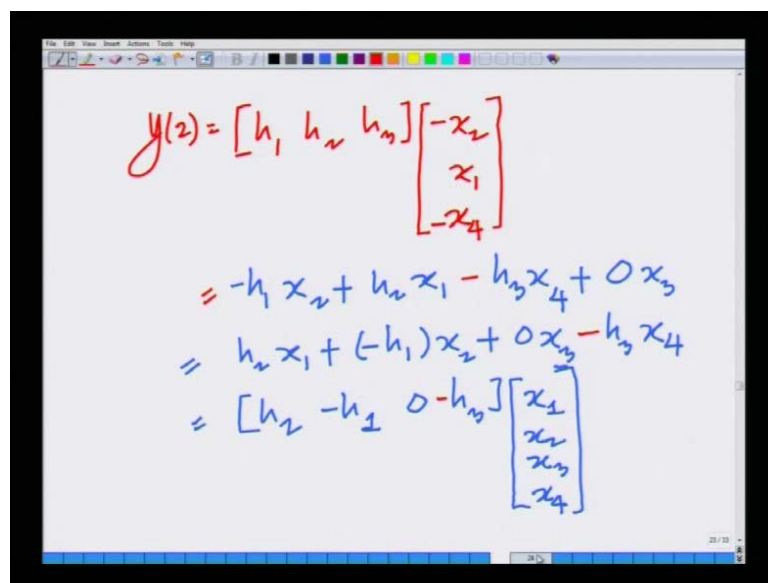 File Edit View Insert Actions Tools Help
y(2) = [h₁ h₂ h₃] [-x₂ x₁ -x₄]
= -h₁ x₂ + h₂ x₁ - h₃ x₄ + 0 x₃
= h₂ x₁ + (-h₁) x₂ + 0 x₃ - h₃ x₄
= [h₂ -h₁ 0 -h₃] [x₁ x₂ x₃ x₄]
23 / 33